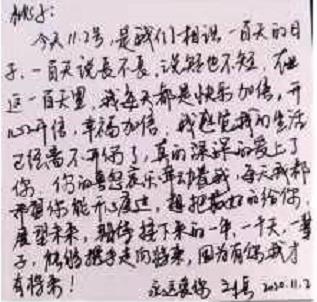 今天11.2号,是我们相识一百天的日
子,一百天说长不长,说短也不短,在
这一百天里,我每天都是快乐加倍,开
心加倍,幸福加倍,我感觉我的生活
已经离不开你了,真的深深的爱上了
你,你的喜怒哀乐牵动着我,每天我都
希望你能开心度过,想把最好的给你,
展望未来,期待接下来的一年,一千天,一辈
子,能够携手走向将来,因为有你我才
有将来!
永远爱你 2020.11.2